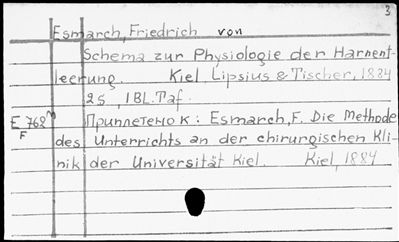 3
Esmarch, Friedrich von
Schema zur Physiologie der Harnent-
leerung. Kiel, Lipsius & Tischer, 1884
2S, 1Bl. Taf.
E 768 m/F Приплетенок: Esmarch, F. Die Methode
des Unterrichts an der chirurgischen Kli-
nik der Universität Kiel. Kiel, 1884